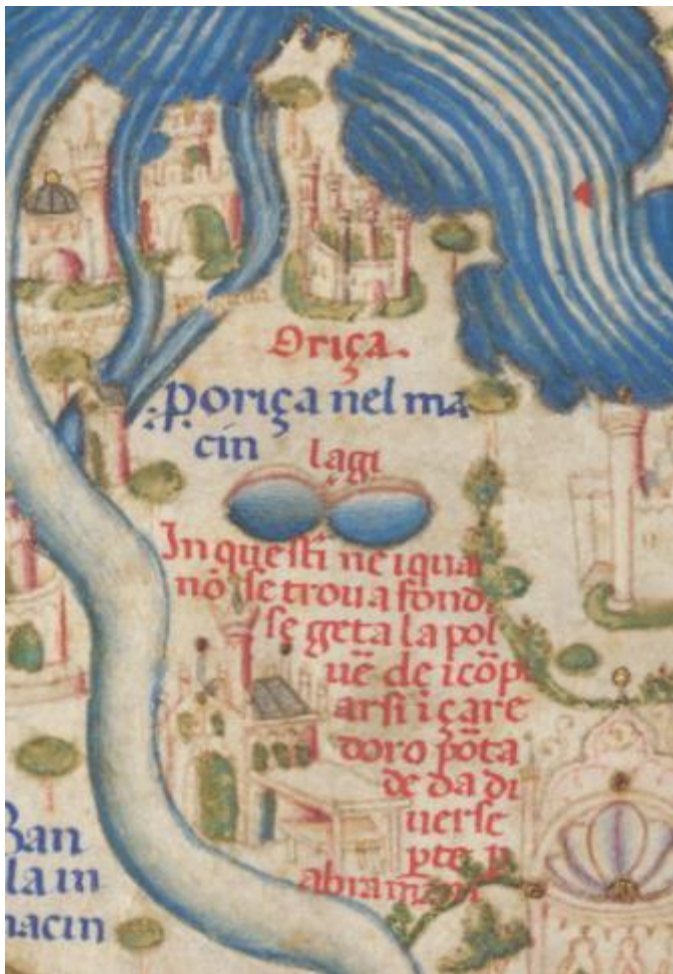 Oriça.
Poriça nel ma
cin
lagi
In questi ne i qua
nō se trova fond
se geta la pol
uē de icōp
arsi i çare
doro pōta
de da di
uerse
ꝑte ꝑ
abramani
Ban
la in
macin